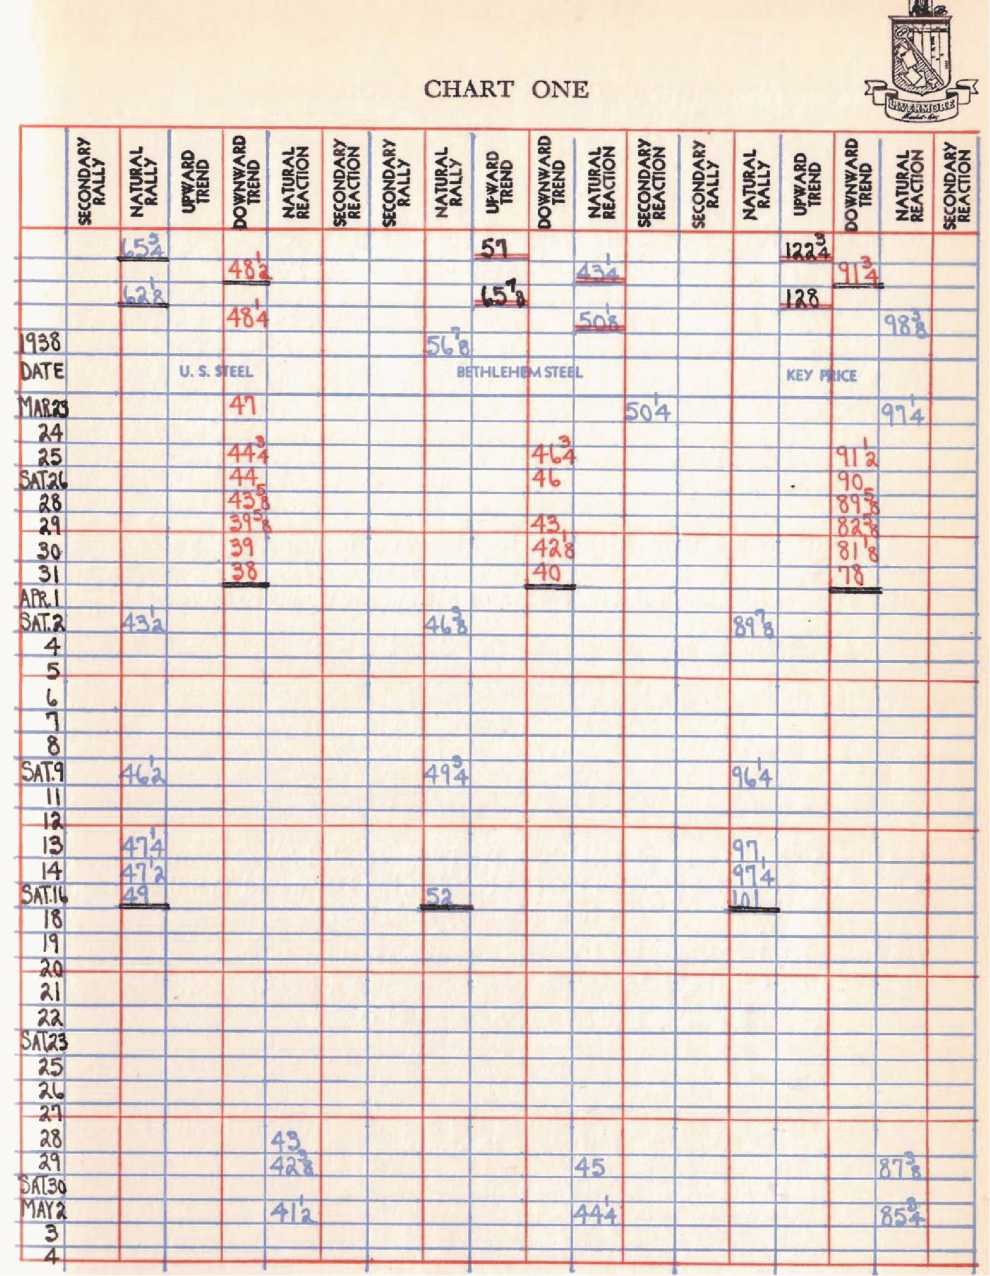 CHART ONE
LIVERMORE
Market-Key
SECONDARY RALLY NATURAL RALLY UPWARD TREND DOWNWARD TREND NATURAL REACTION SECONDARY REACTION SECONDARY RALLY NATURAL RALLY UPWARD TREND DOWNWARD TREND NATURAL REACTION SECONDARY REACTION SECONDARY RALLY NATURAL RALLY UPWARD TREND DOWNWARD TREND NATURAL REACTION SECONDARY REACTION
65 3/4 57 122 3/4
48 1/2 43 1/4 91 3/4
62 1/8 65 7/8 128
48 1/4 50 1/8 98 3/8
1938 56 7/8
DATE U. S. STEEL BETHLEHEM STEEL KEY PRICE
MAR.23 47 50 1/4 97 1/4
24
25 44 3/4 46 3/4 91 1/2
SAT.26 44 46 90
28 43 5/8 89 5/8
29 39 5/8 43 82 5/8
30 39 42 1/8 81 1/8
31 38 40 78
APR.1
SAT.2 43 1/2 46 3/8 89 7/8
4
5
6
7
8
SAT.9 46 1/2 49 3/4 96 1/4
11
12
13 47 1/4 97
14 47 1/2 97 1/4
SAT.16 49 52 101
18
19
20
21
22
SAT.23
25
26
27
28 43
29 42 3/8 45 87 3/8
SAT.30
MAY 2 41 1/2 44 1/4 85 3/4
3
4